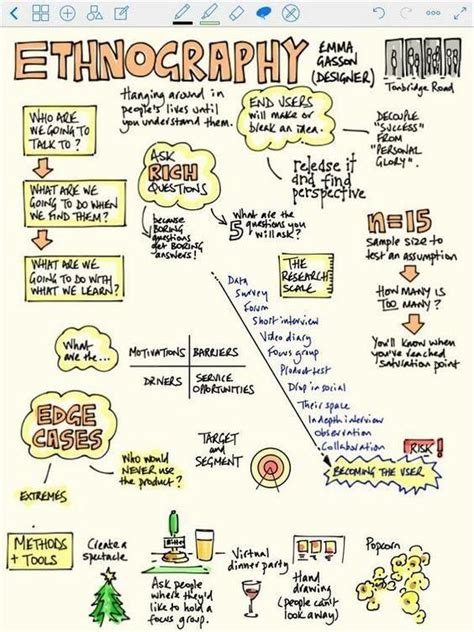 ETHNOGRAPHY
EMMA
GASSON
(DESIGNER)
Tonbridge Road
Hanging around in
people's lives until
you understand them.
END USERS
will make or
break an idea.
DECOUPLE
"SUCCESS"
FROM
"PERSONAL
GLORY".
release it
and find
perspective
WHO ARE
WE GOING TO
TALK TO?
WHAT ARE WE
GOING TO DO WHEN
WE FIND THEM?
WHAT ARE WE
GOING TO DO WITH
WHAT WE LEARN?
ASK
RICH
QUESTIONS
because
BORING
questions
get BORING
answers!
What are the
5 questions you
will ask?
n=15
SAMPLE SIZE to
test an assumption
HOW MANY IS
TOO MANY?
You'll know when
you've reached
saturation point
THE
RESEARCH
SCALE
Data
Survey
Forum
Short interview
Video diary
Focus group
Product test
Drop in social
Their space
Indepth interview
Observation
Collaboration
RISK!
BECOMING THE USER
What
are the...
MOTIVATIONS
BARRIERS
DRIVERS
SERVICE
OPPORTUNITIES
EDGE
CASES
EXTREMES
Who would
NEVER use
the product?
TARGET
and
SEGMENT
METHODS
+ TOOLS
Create a
spectacle
Ask people
where they'd
like to hold a
focus group.
Virtual
dinner party
Hand
drawing
(people can't
look away)
Popcorn